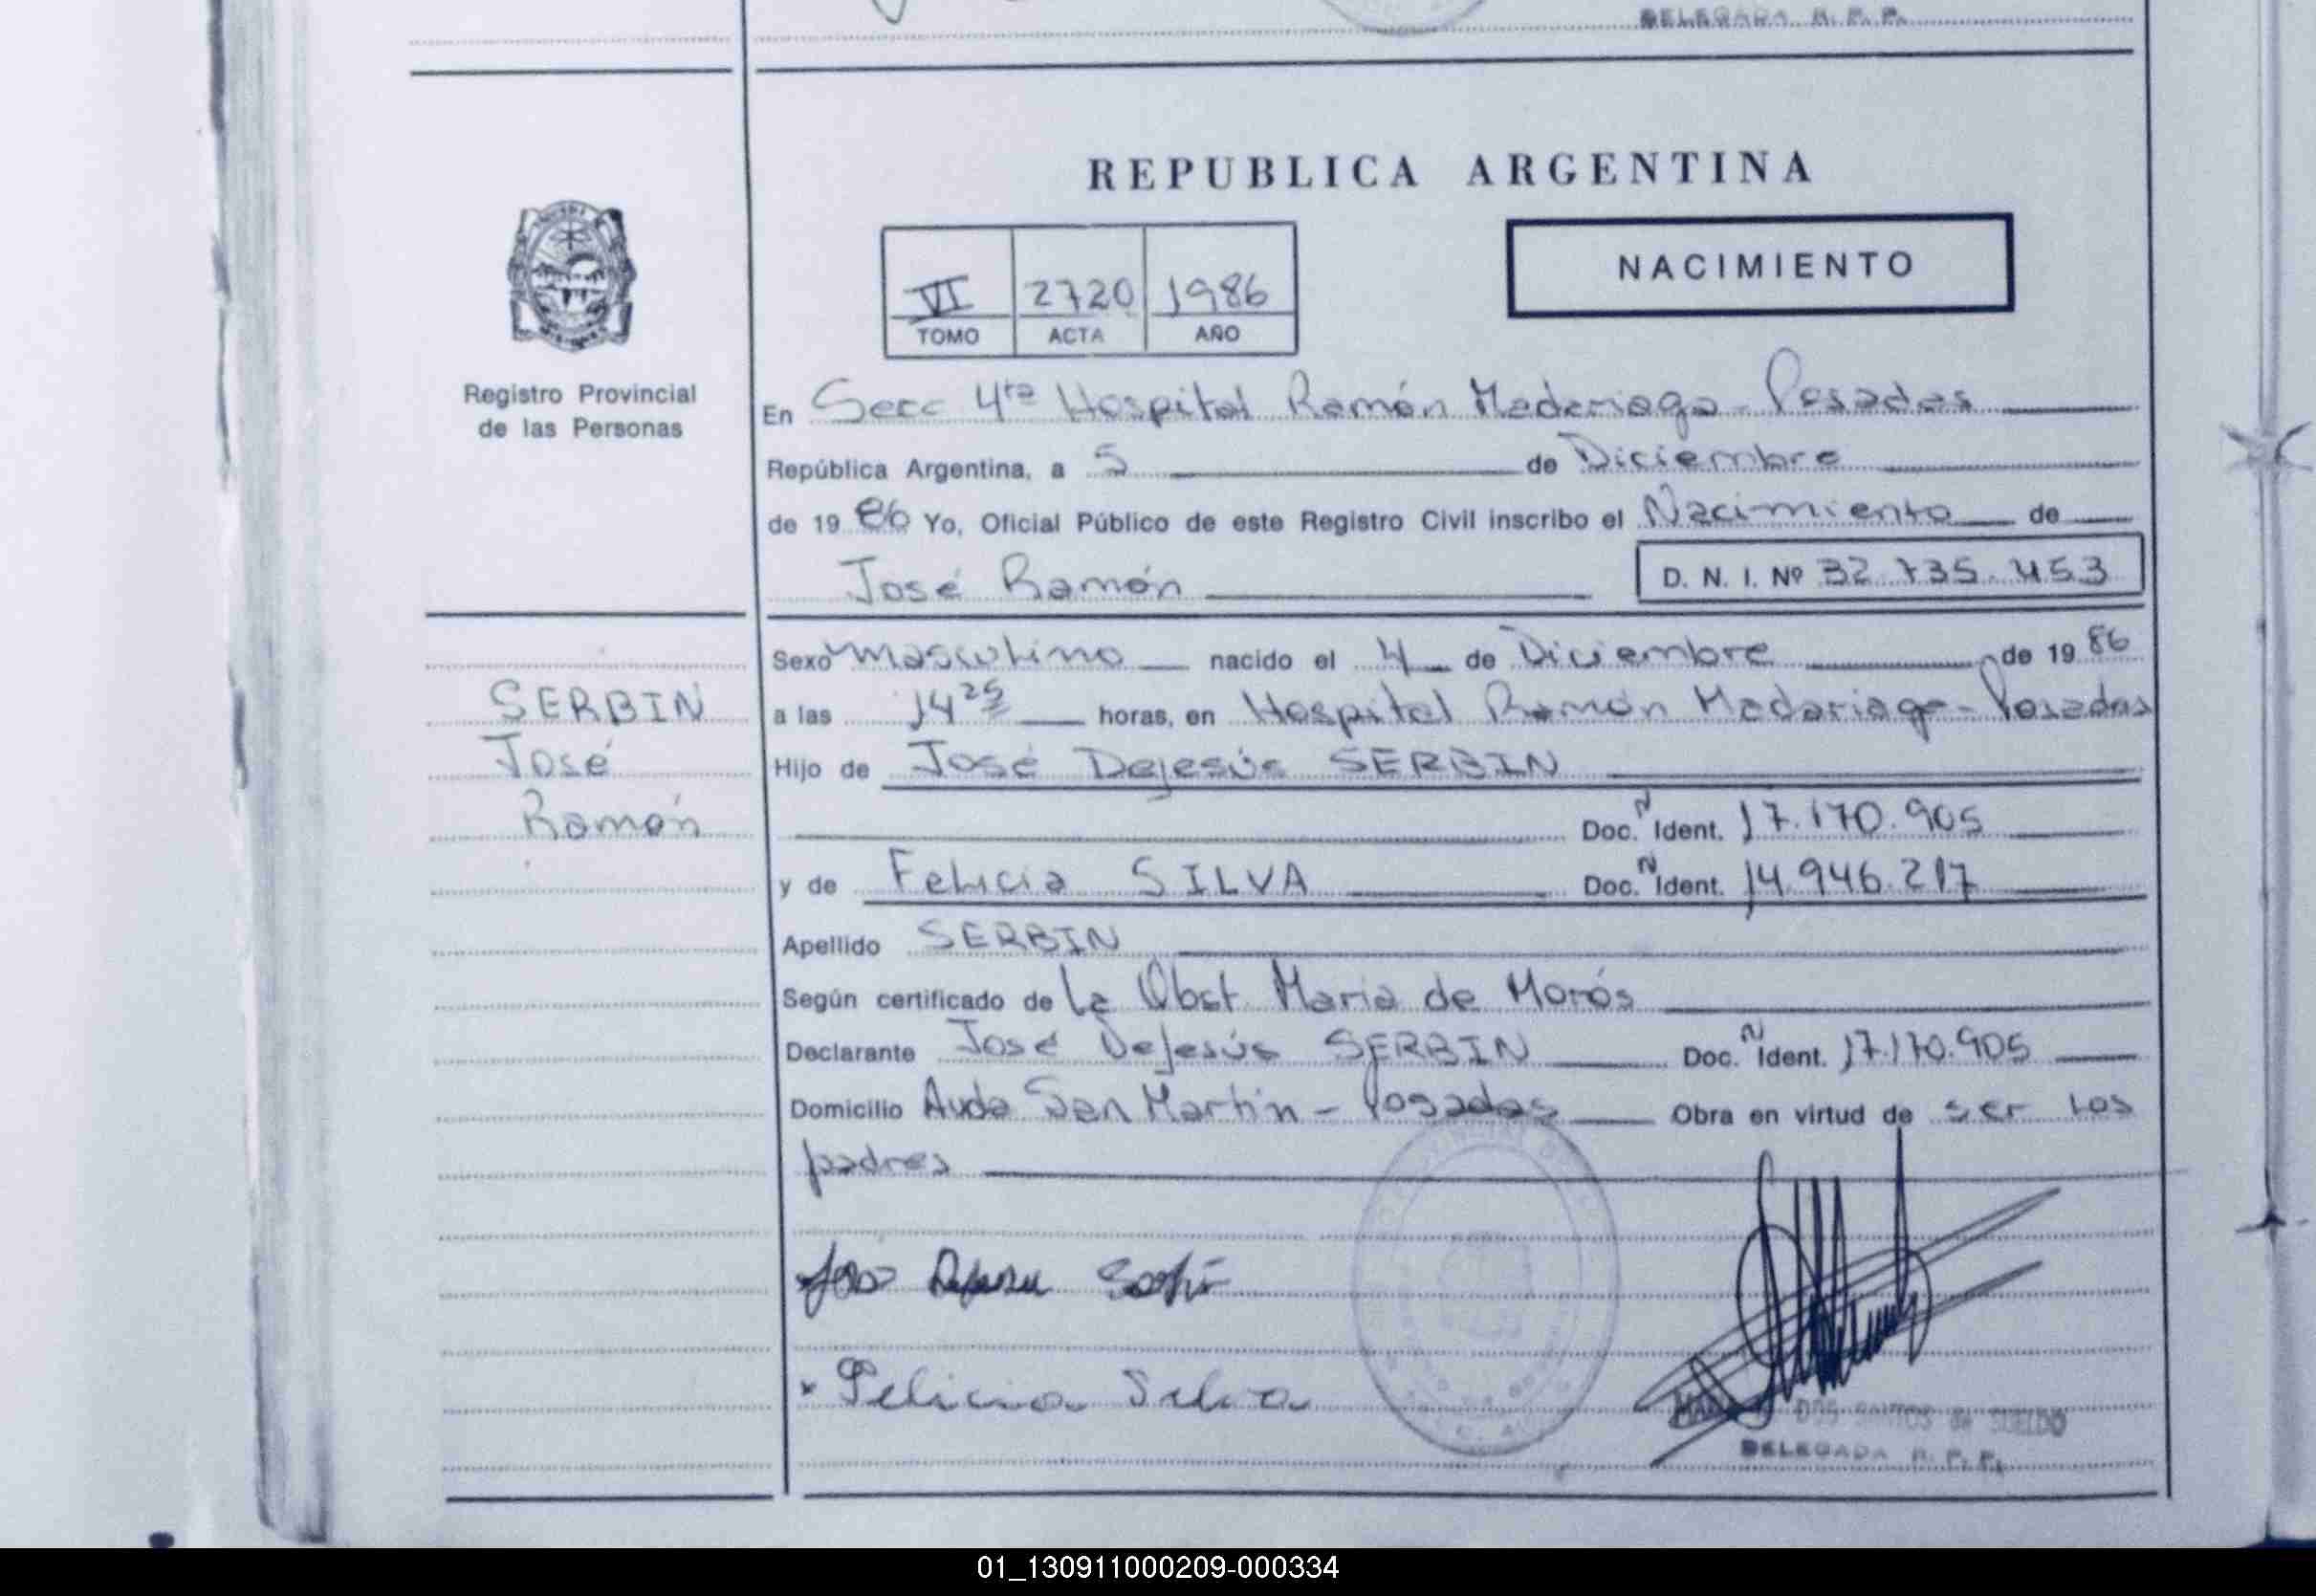 DELEGADA R. P. P.
REPUBLICA ARGENTINA
NACIMIENTO
VI 2720 1986
TOMO ACTA AÑO
Registro Provincial
de las Personas
En Secc 4ta Hospital Ramón Madariaga - Posadas
República Argentina, a 5 de Diciembre
de 19 86 Yo, Oficial Público de este Registro Civil inscribo el Nacimiento de
José Ramón D. N. I. Nº 32.735.453
Sexo masculino nacido el 4 de Diciembre de 19 86
SERBIN
a las 14 25 horas, en Hospital Ramón Madariaga - Posadas
José
Hijo de José Dejesús SERBIN
Ramón
Doc. N Ident. 17.170.905
y de Felicia SILVA Doc. N Ident. 14.946.217
Apellido SERBIN
Según certificado de la Obst Maria de Morós
Declarante José Dejesús SERBIN Doc. N Ident. 17.170.905
Domicilio Avda San Martín - Posadas Obra en virtud de ser los
padres
Felicia Silva
DOS SANTOS de SUELDO
DELEGADA R. P. P.
01_130911000209-000334